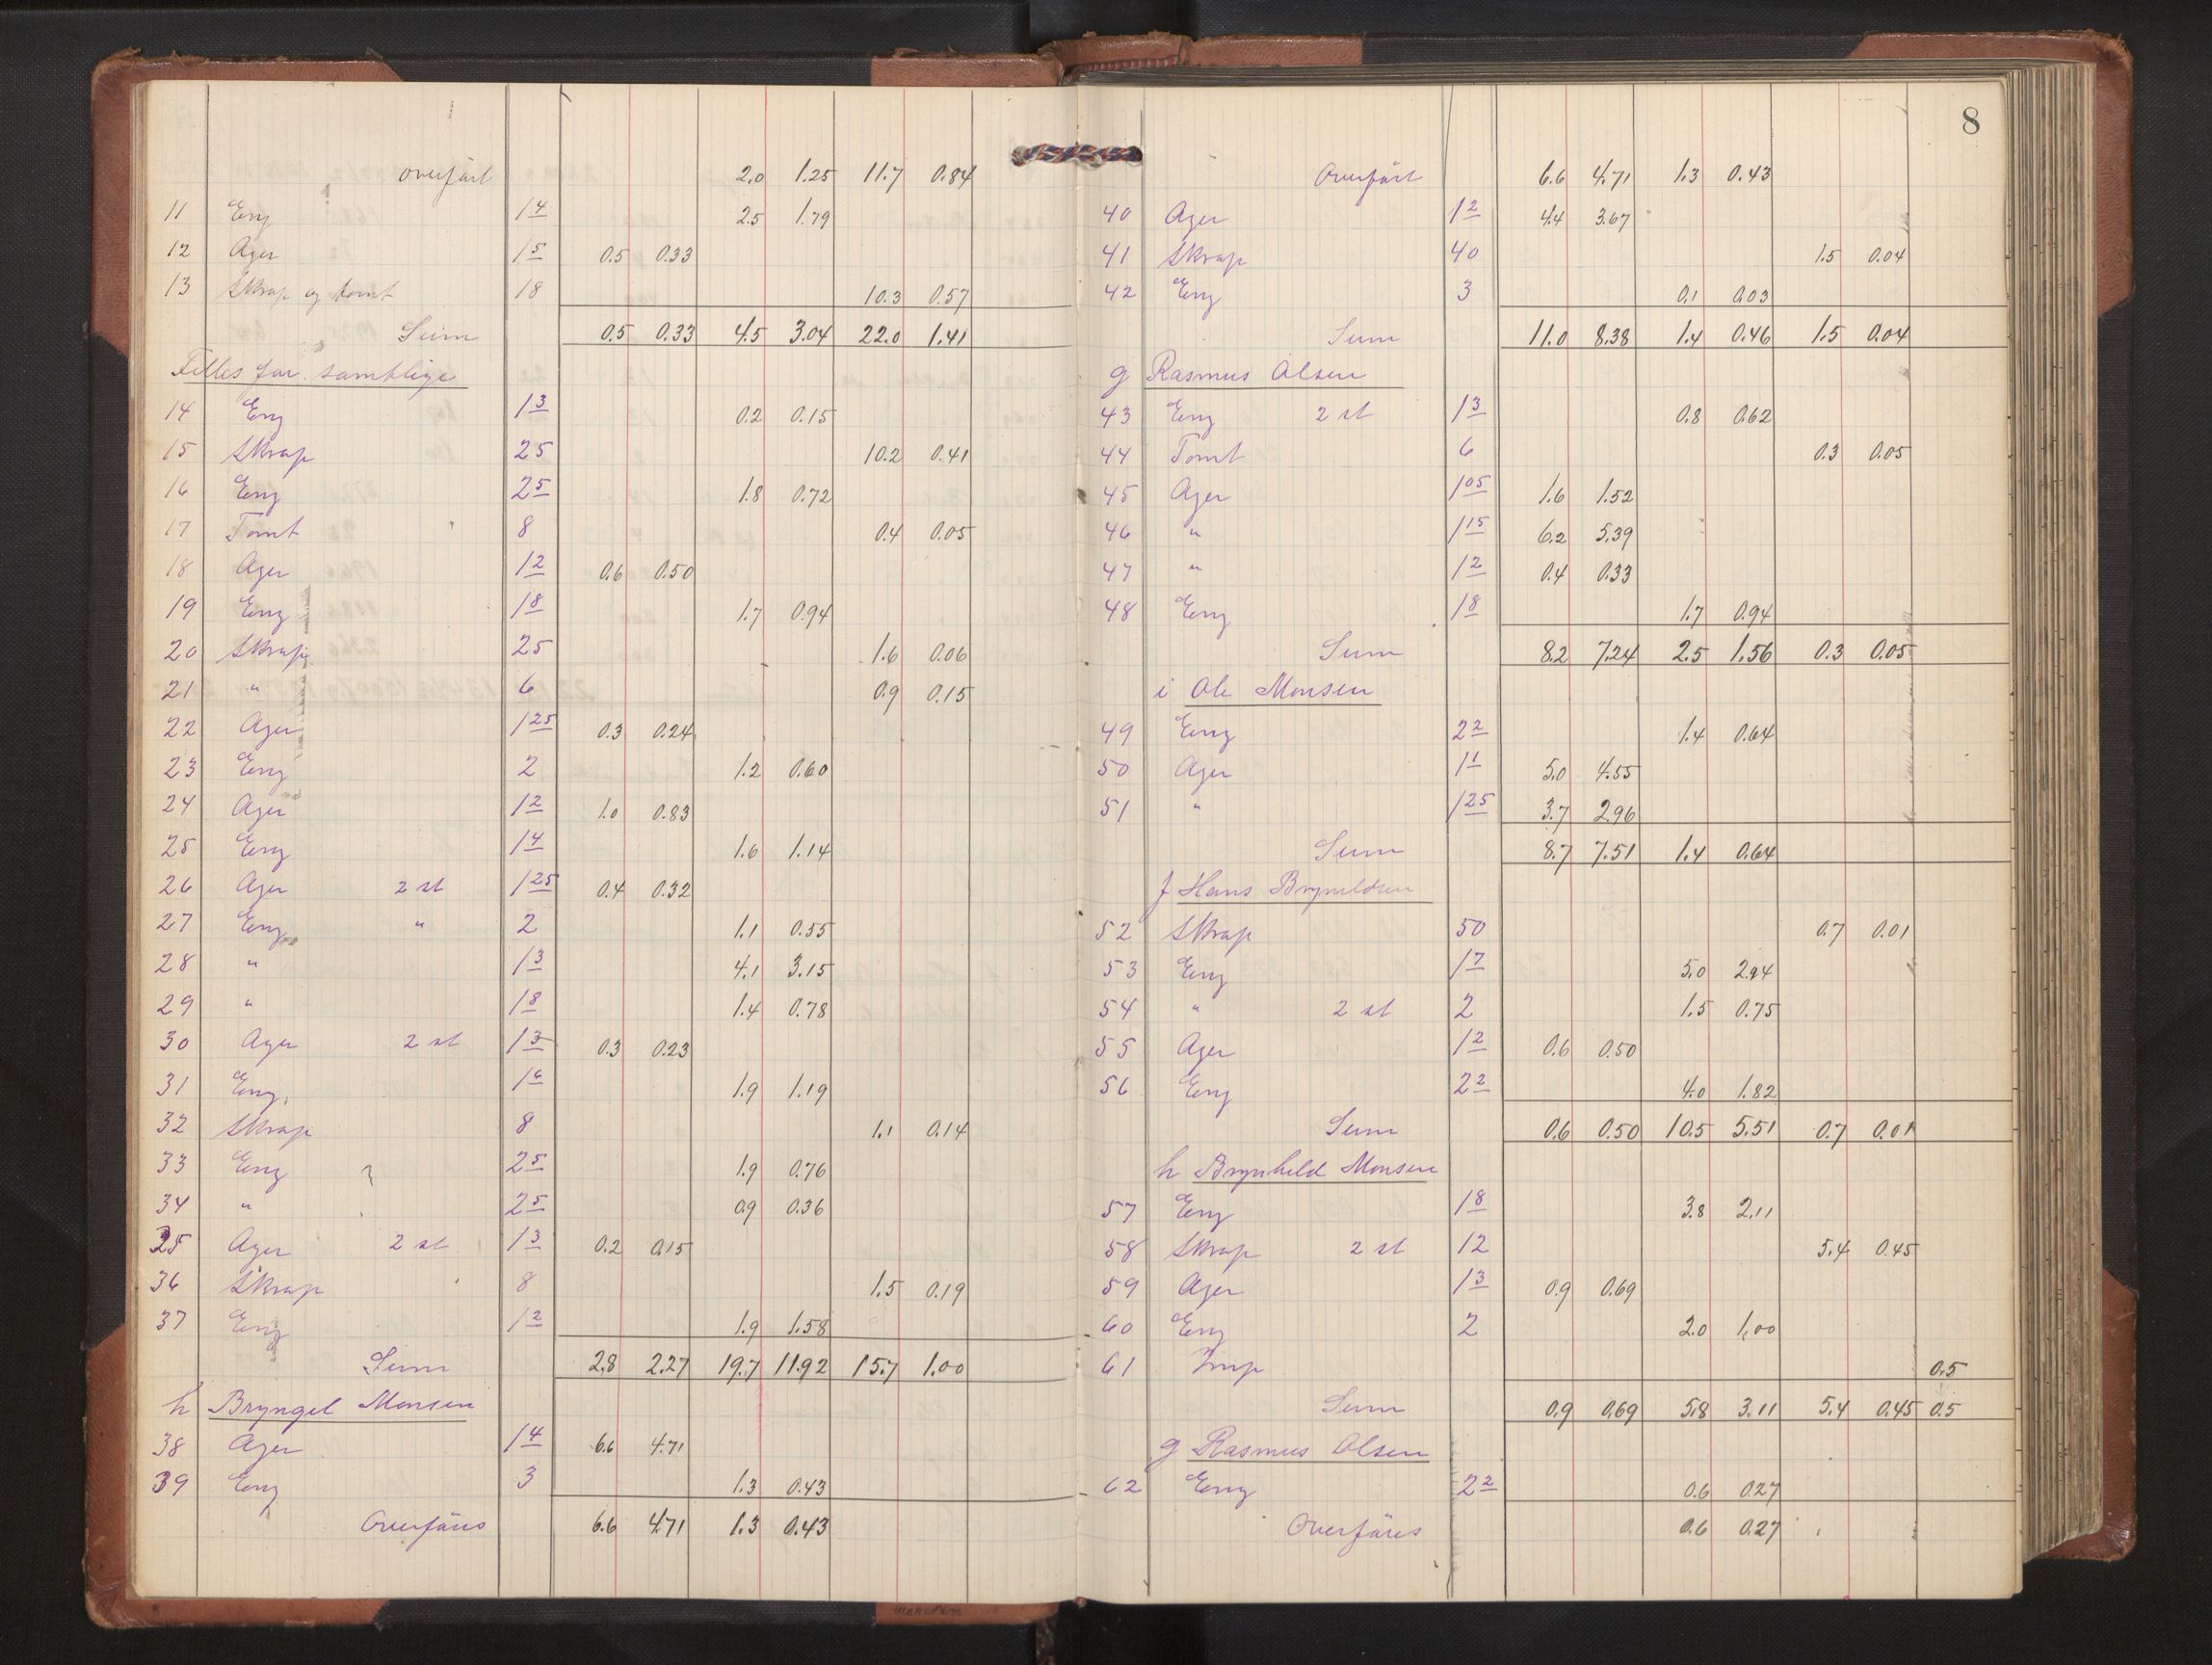 overført 2.0 1.25 11.7 0.84
11 Eng 1 4 2.5 1.79
12 Ager 1 5 0.5 0.33
13 Skrap og tomt 18 10.3 0.57
Sum 0.5 0.33 4.5 3.04 22.0 1.41
Felles for samtlige
14 Eng 1 3 0.2 0.15
15 Skrap 25 10.2 0.41
16 Eng 2 5 1.8 0.72
17 Tomt 8 0.4 0.05
18 Ager 1 2 0.6 0.50
19 Eng 1 8 1.7 0.94
20 Skrap 25 1.6 0.06
21 " 6 0.9 0.15
22 Ager 1 25 0.3 0.24
23 Eng 2 1.2 0.60
24 Ager 1 2 1.0 0.83
25 Eng 1 4 1.6 1.14
26 Ager 2 st 1 25 0.4 0.32
27 Eng " 2 1.1 0.55
28 " 1 3 4.1 3.15
29 " 1 8 1.4 0.78
30 Ager 2 st 1 3 0.3 0.23
31 Eng 1 6 1.9 1.19
32 Skrap 8 1.1 0.14
33 Eng 2 5 1.9 0.76
34 " 2 5 0.9 0.36
35 Ager 2 st 1 3 0.2 0.15
36 Skrap 8 1.5 0.19
37 Eng 1 2 1.9 1.58
Sum 2.8 2.27 19.7 11.92 15.7 1.00
h Bryngel Monsen
38 Ager 1 4 6.6 4.71
39 Eng 3 1.3 0.43
Overføres 6.6 4.71 1.3 0.43
8
Overført 6.6 4.71 1.3 0.43
40 Ager 1 2 4.4 3.67
41 Skrap 40 1.5 0.04
42 Eng 3 0.1 0.03
Sum 11.0 8.38 1.4 0.46 1.5 0.04
g Rasmus Olsen
43 Eng 2 st 1 3 0.8 0.62
44 Tomt 6 0.3 0.05
45 Ager 1 05 1.6 1.52
46 " 1 15 6.2 5.39
47 " 1 2 0.4 0.33
48 Eng 1 8 1.7 0.94
Sum 8.2 7.24 2.5 1.56 0.3 0.05
i Ole Monsen
49 Eng 2 2 1.4 0.64
50 Ager 1 1 5.0 4.55
51 " 1 25 3.7 2.96
Sum 8.7 7.51 1.4 0.64
f Hans Bryneldsen
52 Skrap 50 0.7 0.01
53 Eng 1 7 5.0 2.94
54 " 2 st 2 1.5 0.75
55 Ager 1 2 0.6 0.50
56 Eng 2 2 4.0 1.82
Sum 0.6 0.50 10.5 5.51 0.7 0.01
h Brynheld Monsen
57 Eng 1 8 3.8 2.11
58 Skrap 2 st 12 5.4 0.45
59 Ager 1 3 0.9 0.69
60 Eng 2 2.0 1.00
61 Imp 0.5
Sum 0.9 0.69 5.8 3.11 5.4 0.45 0.5
g Rasmus Olsen
62 Eng 2 2 0.6 0.27
Overføres 0.6 0.27